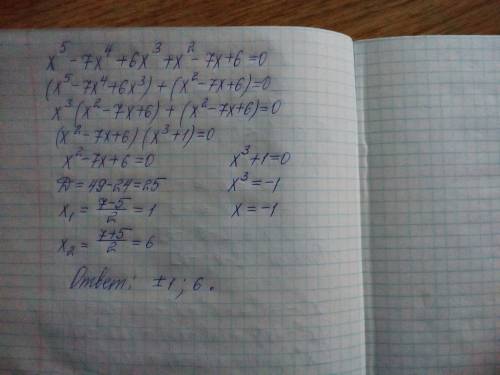 x⁵ - 7x⁴ + 6x³ + x² - 7x + 6 = 0
(x⁵ - 7x⁴ + 6x³) + (x² - 7x + 6) = 0
x³(x² - 7x + 6) + (x² - 7x + 6) = 0
(x² - 7x + 6)(x³ + 1) = 0
x² - 7x + 6 = 0    x³ + 1 = 0
D = 49 - 24 = 25    x³ = -1
x₁ = (7-5)/2 = 1    x = -1
x₂ = (7+5)/2 = 6
Ответ: ±1; 6.